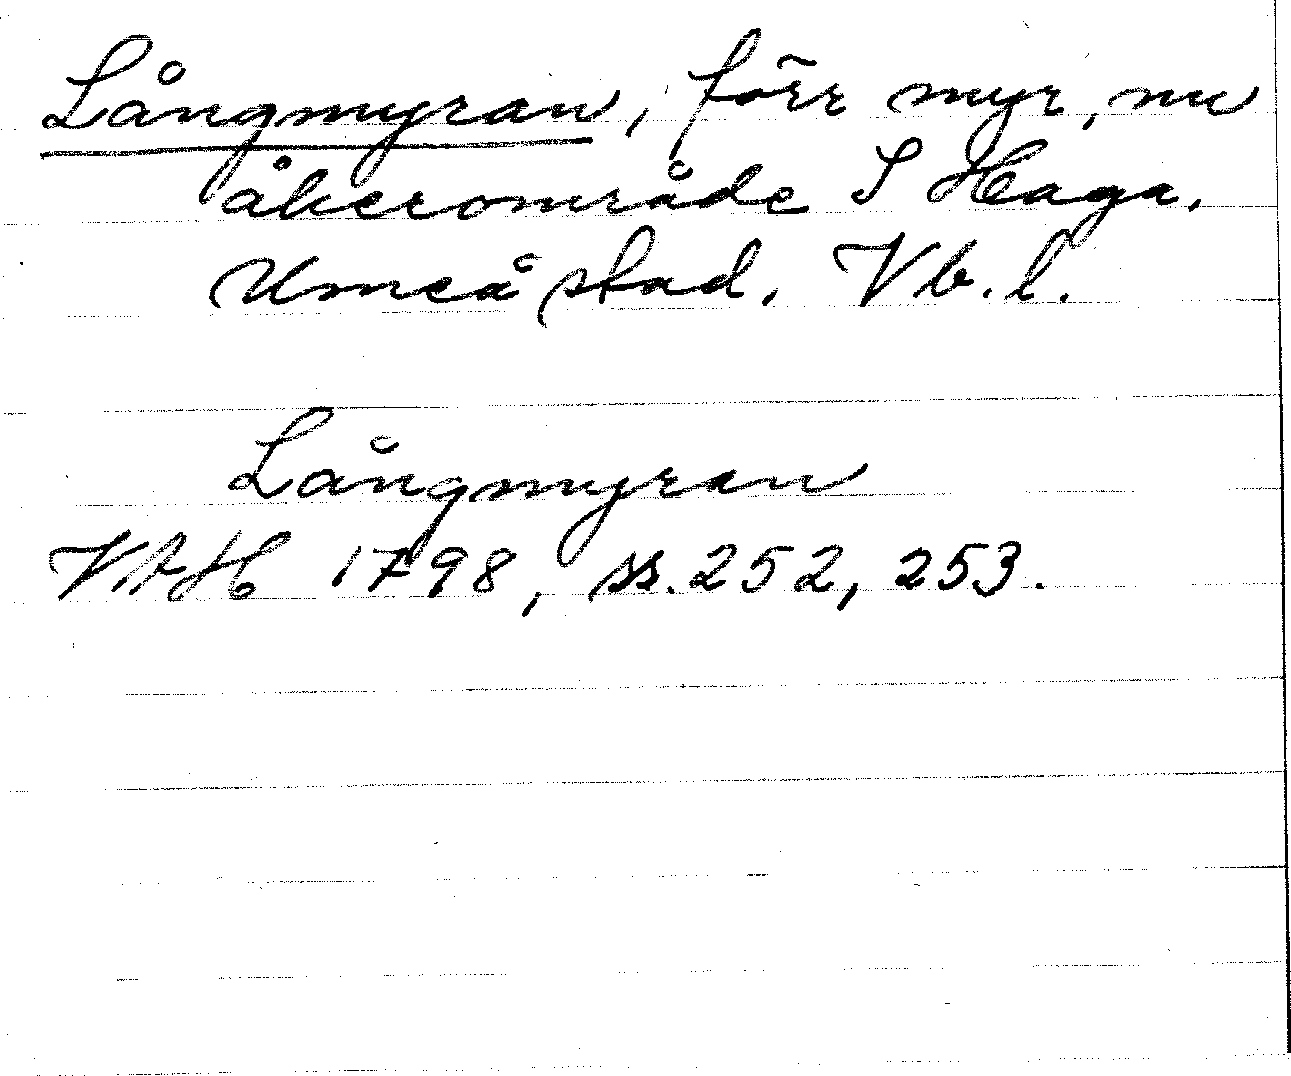 Långmyran, förr myr, nu
åkerområde S Haga.
Umeå stad. Vb. l.
Långmyran
VAH 1798, ss. 252, 253.